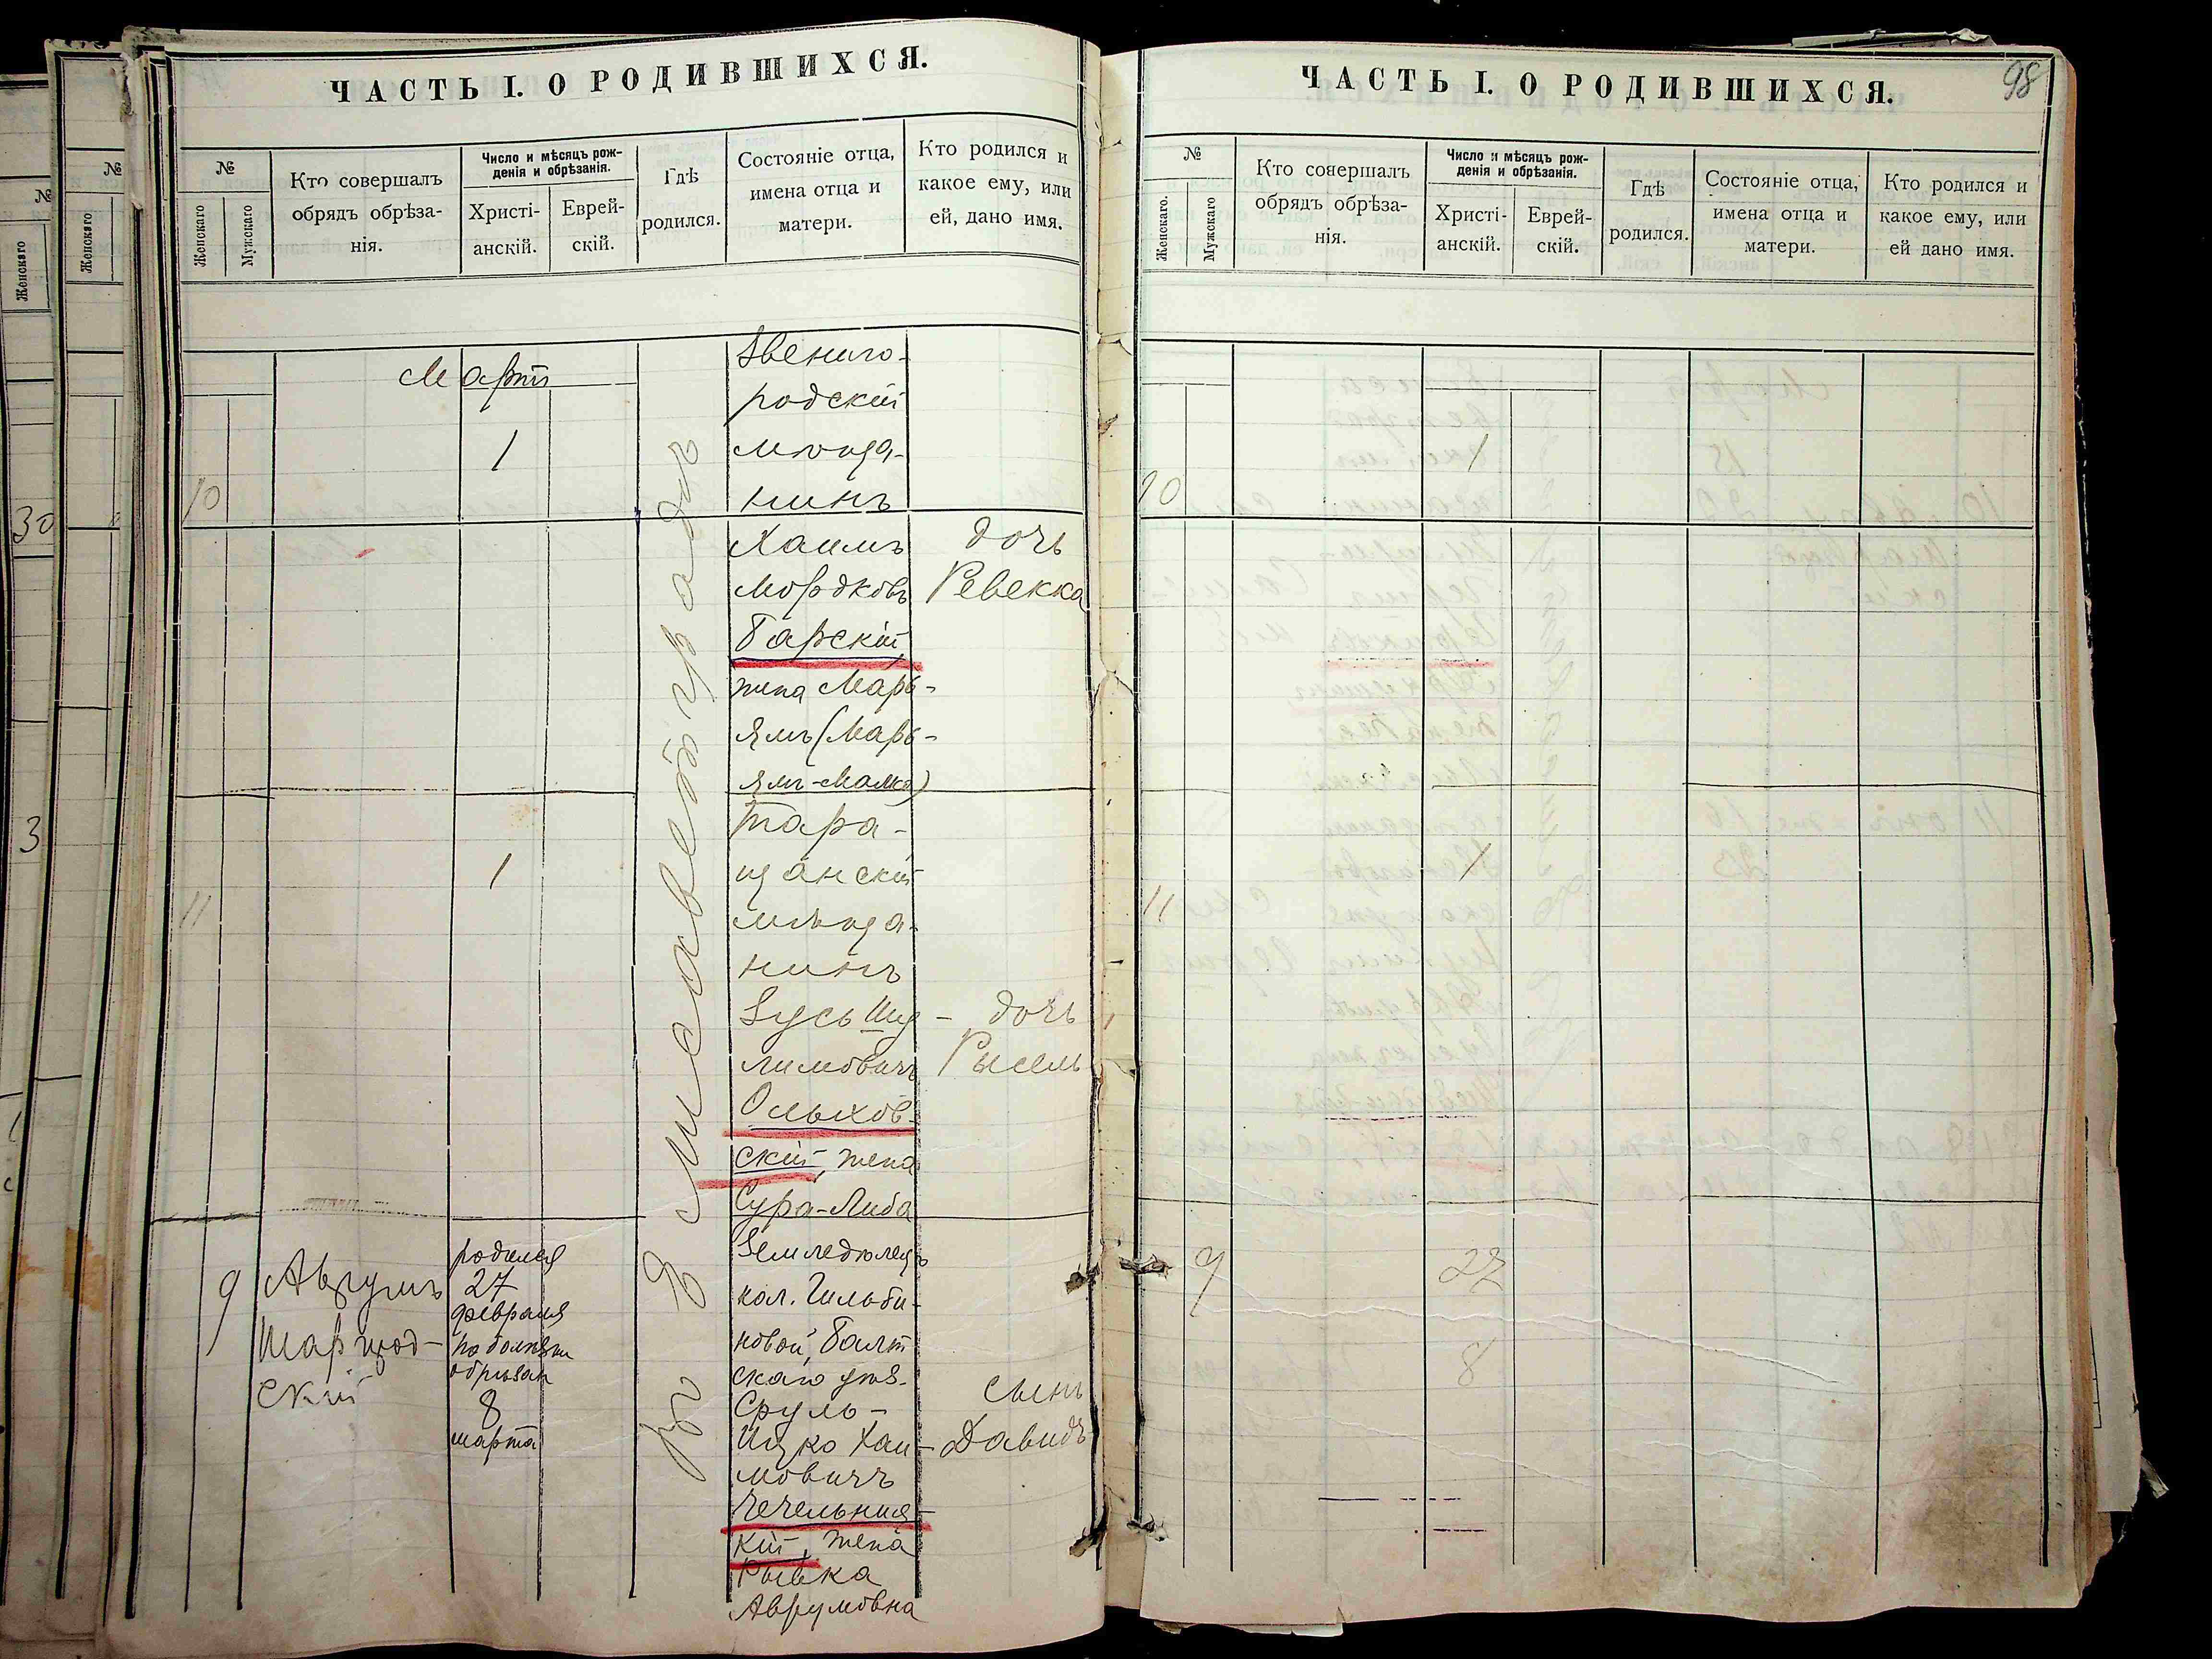 ЧАСТЬ I. О РОДИВШИХСЯ.
№
Женскаго
Мужскаго
Кто совершалъ
обрядъ обрѣза-
нія.
Число и мѣсяцъ рож-
денія и обрѣзанія.
Христі-
анскій.
Еврей-
скій.
Гдѣ
родился.
Состояніе отца,
имена отца и
матери.
Кто родился и
какое ему, или
ей, дано имя.
Мартъ
10
1
Звениго-
родскій
мѣща-
нинъ
Хаимъ
Мордковъ
Барскій,
жена Марь-
ямъ (Марь-
ямъ-Малка)
дочь
Ревекка
11
1
Тара-
щанскій
мѣща-
нинъ
Зусь Шу-
лимовичъ
Ольхов-
скій, жена
Сура-Либа
дочь
Рысель
9
Аврумъ
Шаргрод-
скій
родился
27
февраля
по болѣзни
обрѣзан
8
марта
Въ Елисаветградѣ
Земледѣлецъ
кол. Гильби-
новой, Балт
скаго уѣз.
Сруль-
Ицко Хаи-
мовичъ
Чечельниц-
кій, жена
Рывка
Аврумовна
сынъ
Давидъ
ЧАСТЬ I. О РОДИВШИХСЯ.
98
№
Женскаго.
Мужскаго
Кто совершалъ
обрядъ обрѣза-
нія.
Число и мѣсяцъ рож-
денія и обрѣзанія.
Христі-
анскій.
Еврей-
скій.
Гдѣ
родился.
Состояніе отца,
имена отца и
матери.
Кто родился и
какое ему, или
ей дано имя.
10
1
11
1
9
27
8
№
Женскаго
№
Женскаго
30
3